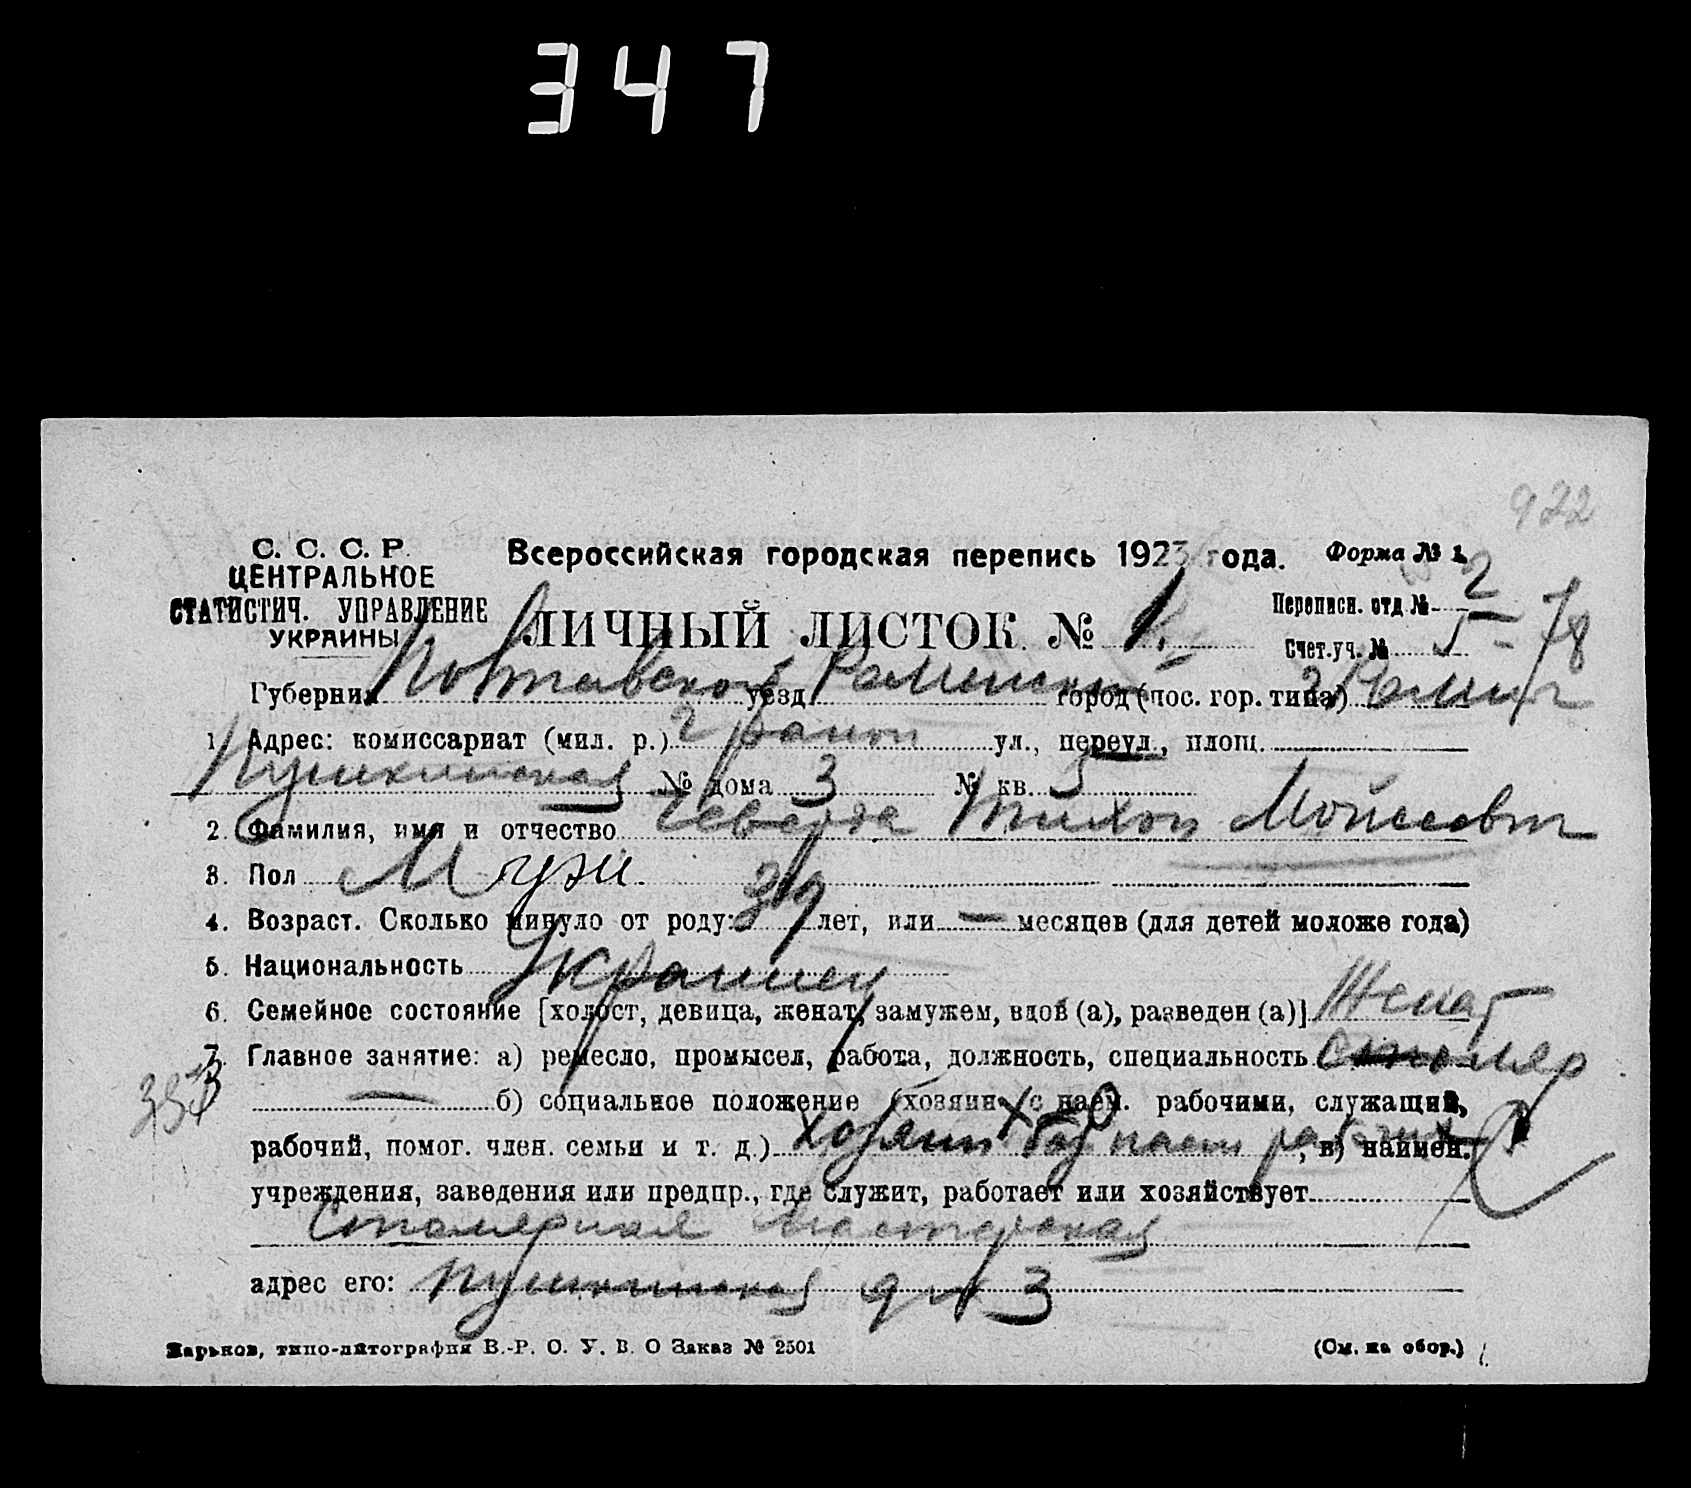 347
922
С. С. С. Р.
ЦЕНТРАЛЬНОЕ
СТАТИСТИЧ. УПРАВЛЕНИЕ
УКРАИНЫ
Всероссийская городская перепись 1923 года.
Форма № 1.
ЛИЧНЫЙ ЛИСТОК № 1.
Переписн. отд № 2
Счет.уч. № 5-78
Губерния Полтавской уезд Роменский город (пос. гор. типа) г Ромны
1. Адрес: комиссариат (мил. р.) 2 район ул., переул., площ.
Пушкинская № дома 3 № кв. 5
2. Фамилия, имя и отчество Чеверда Тихон Мойсеевич
3. Пол Муж.
4. Возраст. Сколько минуло от роду: 39 лет, или — месяцев (для детей моложе года)
5. Национальность Украинец
6. Семейное состояние [холост, девица, женат, замужем, вдов (а), разведен (а)] Женат
7. Главное занятие: а) ремесло, промысел, работа, должность, специальность столяр
— б) социальное положение (хозяин (с наем. рабочими, служащий,
рабочий, помог. член. семьи и т. д.) Хозяин без наем рабочих, в) наимен.
учреждения, заведения или предпр., где служит, работает или хозяйствует
Столярная мастерская
адрес его: Пушкинская д № 3
Харьков, типо-литография В.-Р. О. У. В. О Заказ № 2501
(См. на обор.)